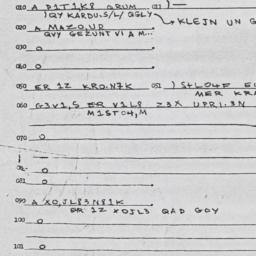 010 A P1T1,K8 GRUM 011 ) —
) QY KARDU.S/L/ GGLY
KLEJN UN G
020 A MAZO,UD
QVY GEZUNT VI A M...
030 O
040 O
050 ER 1Z KRO.N7K 051 ) S+LO4F E
MER KRA
060 G3V1,S ER V1L8 Z3X UPRI.3N
M1STCH,M
070 O
O
081 O
090 A XO,JL83N81K
ER 1Z XOJL3 QAD GOY
100 O
101 O